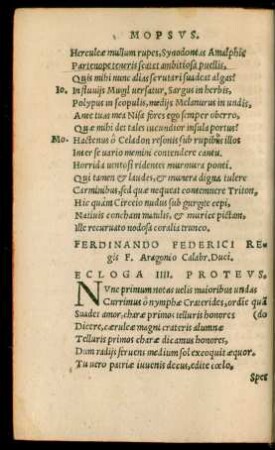 MOPSVS.
Herculeæ mullum rupes, Synodontas Amalphis
Partenope teneris scatet ambitiosa puellis,
Quis mihi nunc alias scrutari suadeat algas?
Io. In fluuijs Mugil uersatur, Sargus in herbis,
Polypus in scopulis, medijs Melanurus in undis,
Ante tuas mea Nisa fores ego semper oberro,
Quæ mihi det tales iucundior insula portus?
Mo. Hactenus ô Celadon resonis sub rupibus illos
Inter se uario memini contendere cantu.
Horrida uentosi rident murmura ponti.
Qui tamen & laudes, & munera digna tulere
Carminibus, sed quæ nequeat contemnere Triton,
Hic quam Circeio nudus sub gurgite cepi,
Natiuis concham maculis, & murice pictam,
Ille recuruato nodosa coralis trunco.
FERDINANDO FEDERICI RE=
gis F. Aragonio Calabr. Duci.
ECLOGA IIII. PROTEVS.
NVnc primum notas uelis maioribus undas
Currimus ô nymphæ Craterides, ordine quã
Suades amor, charæ primos telluris honores (do
Dicere, cæruleæ magni crateris alumnæ
Telluris primos charæ dicamus honores,
Dum radijs feruens medium sol excoquit æquor.
Tu uero patriæ iuuenis decus, edite cœlo,
Spes